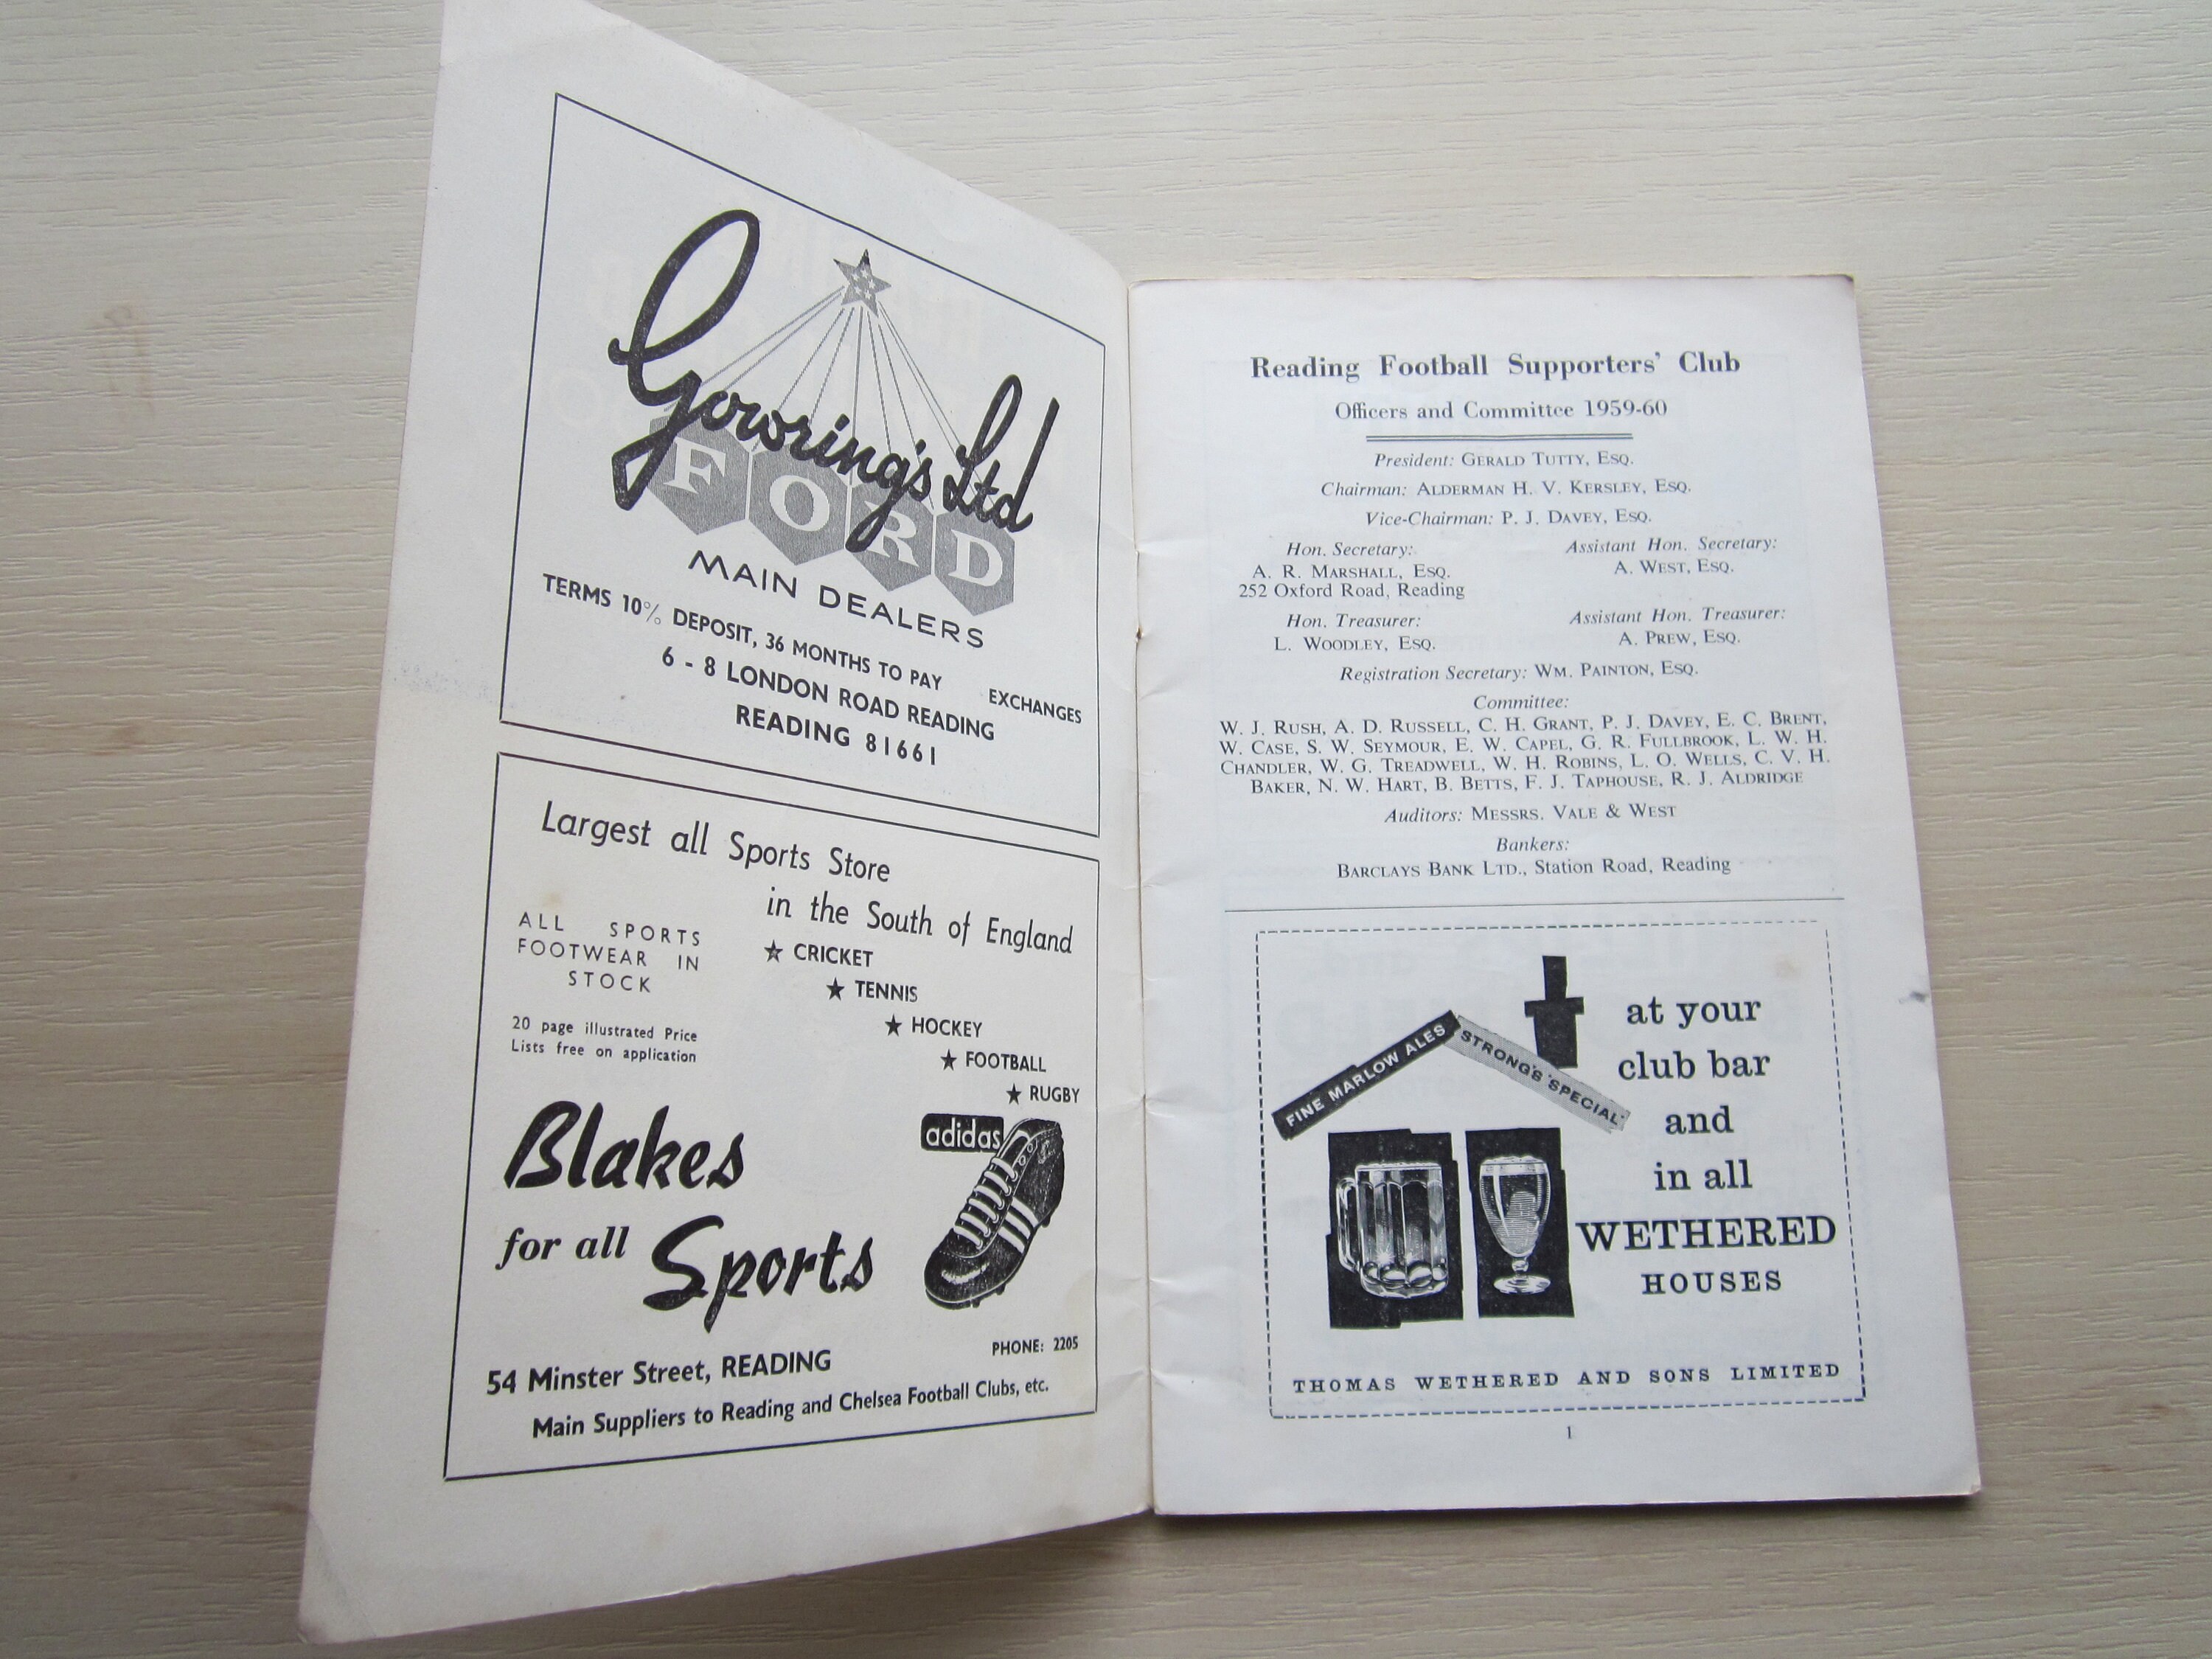 Gowring's Ltd
FORD
MAIN DEALERS
TERMS 10% DEPOSIT, 36 MONTHS TO PAY
EXCHANGES
6 - 8 LONDON ROAD READING
READING 81661
Largest all Sports Store
in the South of England
ALL SPORTS
FOOTWEAR IN
STOCK
20 page illustrated Price
Lists free on application
★ CRICKET
★ TENNIS
★ HOCKEY
★ FOOTBALL
★ RUGBY
adidas
Blakes
for all Sports
PHONE: 2205
54 Minster Street, READING
Main Suppliers to Reading and Chelsea Football Clubs, etc.
Reading Football Supporters' Club
Officers and Committee 1959-60
President: GERALD TUTTY, ESQ.
Chairman: ALDERMAN H. V. KERSLEY, ESQ.
Vice-Chairman: P. J. DAVEY, ESQ.
Hon. Secretary:
A. R. MARSHALL, ESQ.
252 Oxford Road, Reading
Assistant Hon. Secretary:
A. WEST, ESQ.
Hon. Treasurer:
L. WOODLEY, ESQ.
Assistant Hon. Treasurer:
A. PREW, ESQ.
Registration Secretary: WM. PAINTON, ESQ.
Committee:
W. J. RUSH, A. D. RUSSELL, C. H. GRANT, P. J. DAVEY, E. C. BRENT,
W. CASE, S. W. SEYMOUR, E. W. CAPEL, G. R. FULLBROOK, L. W. H.
CHANDLER, W. G. TREADWELL, W. H. ROBINS, L. O. WELLS, C. V. H.
BAKER, N. W. HART, B. BETTS, F. J. TAPHOUSE, R. J. ALDRIDGE
Auditors: MESSRS. VALE & WEST
Bankers:
BARCLAYS BANK LTD., Station Road, Reading
FINE MARLOW ALES
STRONG'S 'SPECIAL'
at your
club bar
and
in all
WETHERED
HOUSES
THOMAS WETHERED AND SONS LIMITED
1